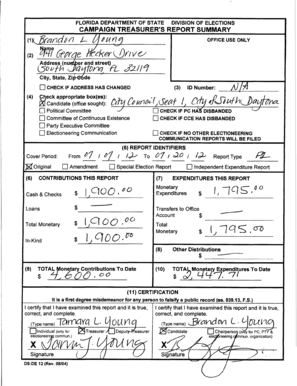 FLORIDA DEPARTMENT OF STATE DIVISION OF ELECTIONS
CAMPAIGN TREASURER'S REPORT SUMMARY
(1) Brandon L Young
OFFICE USE ONLY
Name
(2) 941 George Hecker Drive
Address (number and street)
South Daytona FL 32119
City, State, Zip Code
CHECK IF ADDRESS HAS CHANGED
(3) ID Number: N/A
(4) Check appropriate box(es):
Candidate (office sought): City Council, Seat 1, City of South Daytona
Political Committee CHECK IF PC HAS DISBANDED
Committee of Continuous Existence CHECK IF CCE HAS DISBANDED
Party Executive Committee
Electioneering Communication CHECK IF NO OTHER ELECTIONEERING
COMMUNICATION REPORTS WILL BE FILED
(5) REPORT IDENTIFIERS
Cover Period: From 07 / 07 / 12 To 07 / 20 / 12 Report Type
Original Amendment Special Election Report Independent Expenditure Report
(6) CONTRIBUTIONS THIS REPORT
Cash & Checks $ 1,900.00
Loans $
Total Monetary $ 1,900.00
In-Kind $ 1,900.00
(7) EXPENDITURES THIS REPORT
Monetary
Expenditures $ 1,795.00
Transfers to Office
Account $
Total
Monetary $ 1,795.00
(8) Other Distributions
$
(9) TOTAL Monetary Contributions To Date
$ 4,600.00
(10) TOTAL Monetary Expenditures To Date
$ 2,447.71
(11) CERTIFICATION
It is a first degree misdemeanor for any person to falsify a public record (ss. 839.13, F.S.)
I certify that I have examined this report and it is true, correct, and complete.
(Type name) Tamara L. Young
Individual (only for
Treasurer Deputy Treasurer
X
Signature
I certify that I have examined this report and it is true, correct, and complete.
(Type name) Brandon L. Young
Candidate Chairperson (only for PC, PTY &
X
Signature
DS-DE 12 (Rev. 08/04)